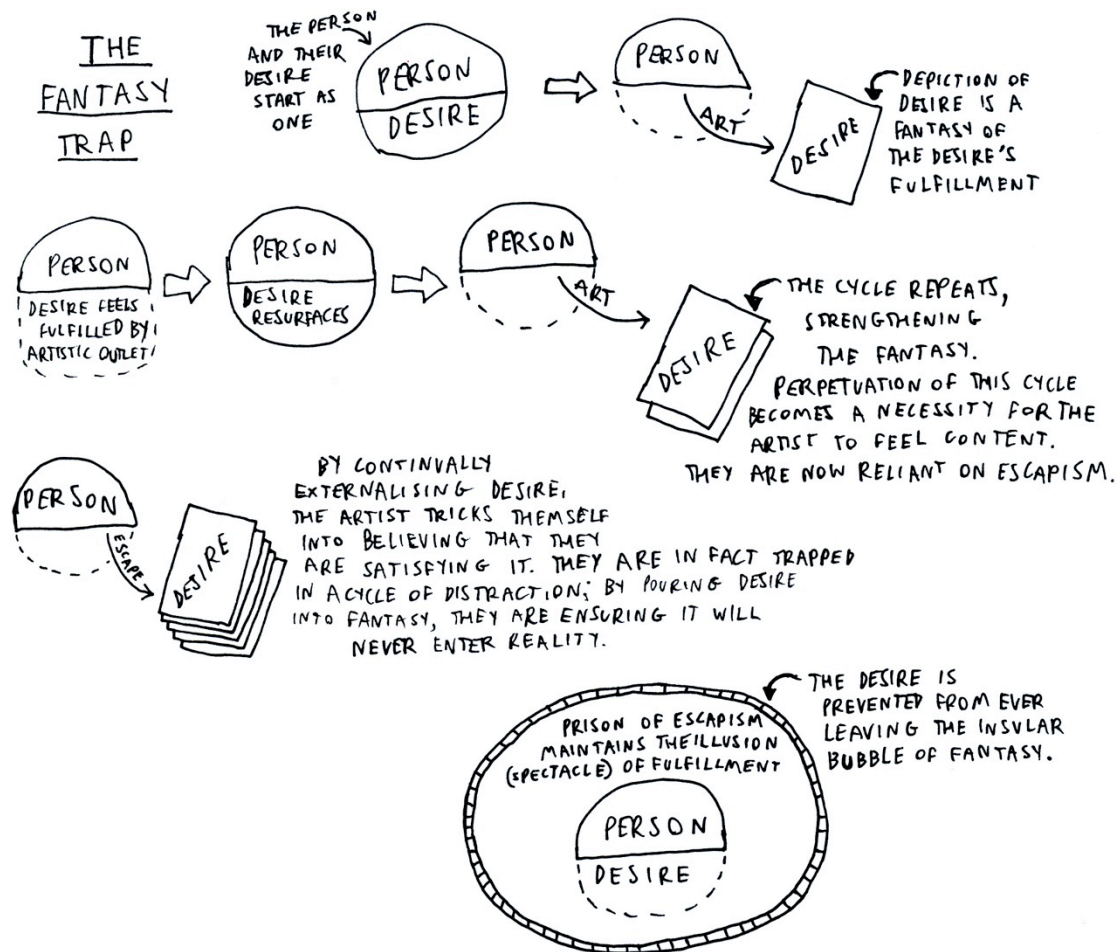 THE
FANTASY
TRAP
THE PERSON
AND THEIR
DESIRE
START AS
ONE
PERSON
DESIRE
PERSON
ART
DESIRE
DEPICTION OF
DESIRE IS A
FANTASY OF
THE DESIRE'S
FULFILLMENT
PERSON
DESIRE FEELS
FULFILLED BY
ARTISTIC OUTLET
PERSON
DESIRE
RESURFACES
PERSON
ART
DESIRE
THE CYCLE REPEATS,
STRENGTHENING
THE FANTASY.
PERPETUATION OF THIS CYCLE
BECOMES A NECESSITY FOR THE
ARTIST TO FEEL CONTENT.
THEY ARE NOW RELIANT ON ESCAPISM.
PERSON
ESCAPE
DESIRE
BY CONTINUALLY
EXTERNALISING DESIRE,
THE ARTIST TRICKS THEMSELF
INTO BELIEVING THAT THEY
ARE SATISFYING IT. THEY ARE IN FACT TRAPPED
IN A CYCLE OF DISTRACTION; BY POURING DESIRE
INTO FANTASY, THEY ARE ENSURING IT WILL
NEVER ENTER REALITY.
PRISON OF ESCAPISM
MAINTAINS THE ILLUSION
(SPECTACLE) OF FULFILLMENT
PERSON
DESIRE
THE DESIRE IS
PREVENTED FROM EVER
LEAVING THE INSULAR
BUBBLE OF FANTASY.